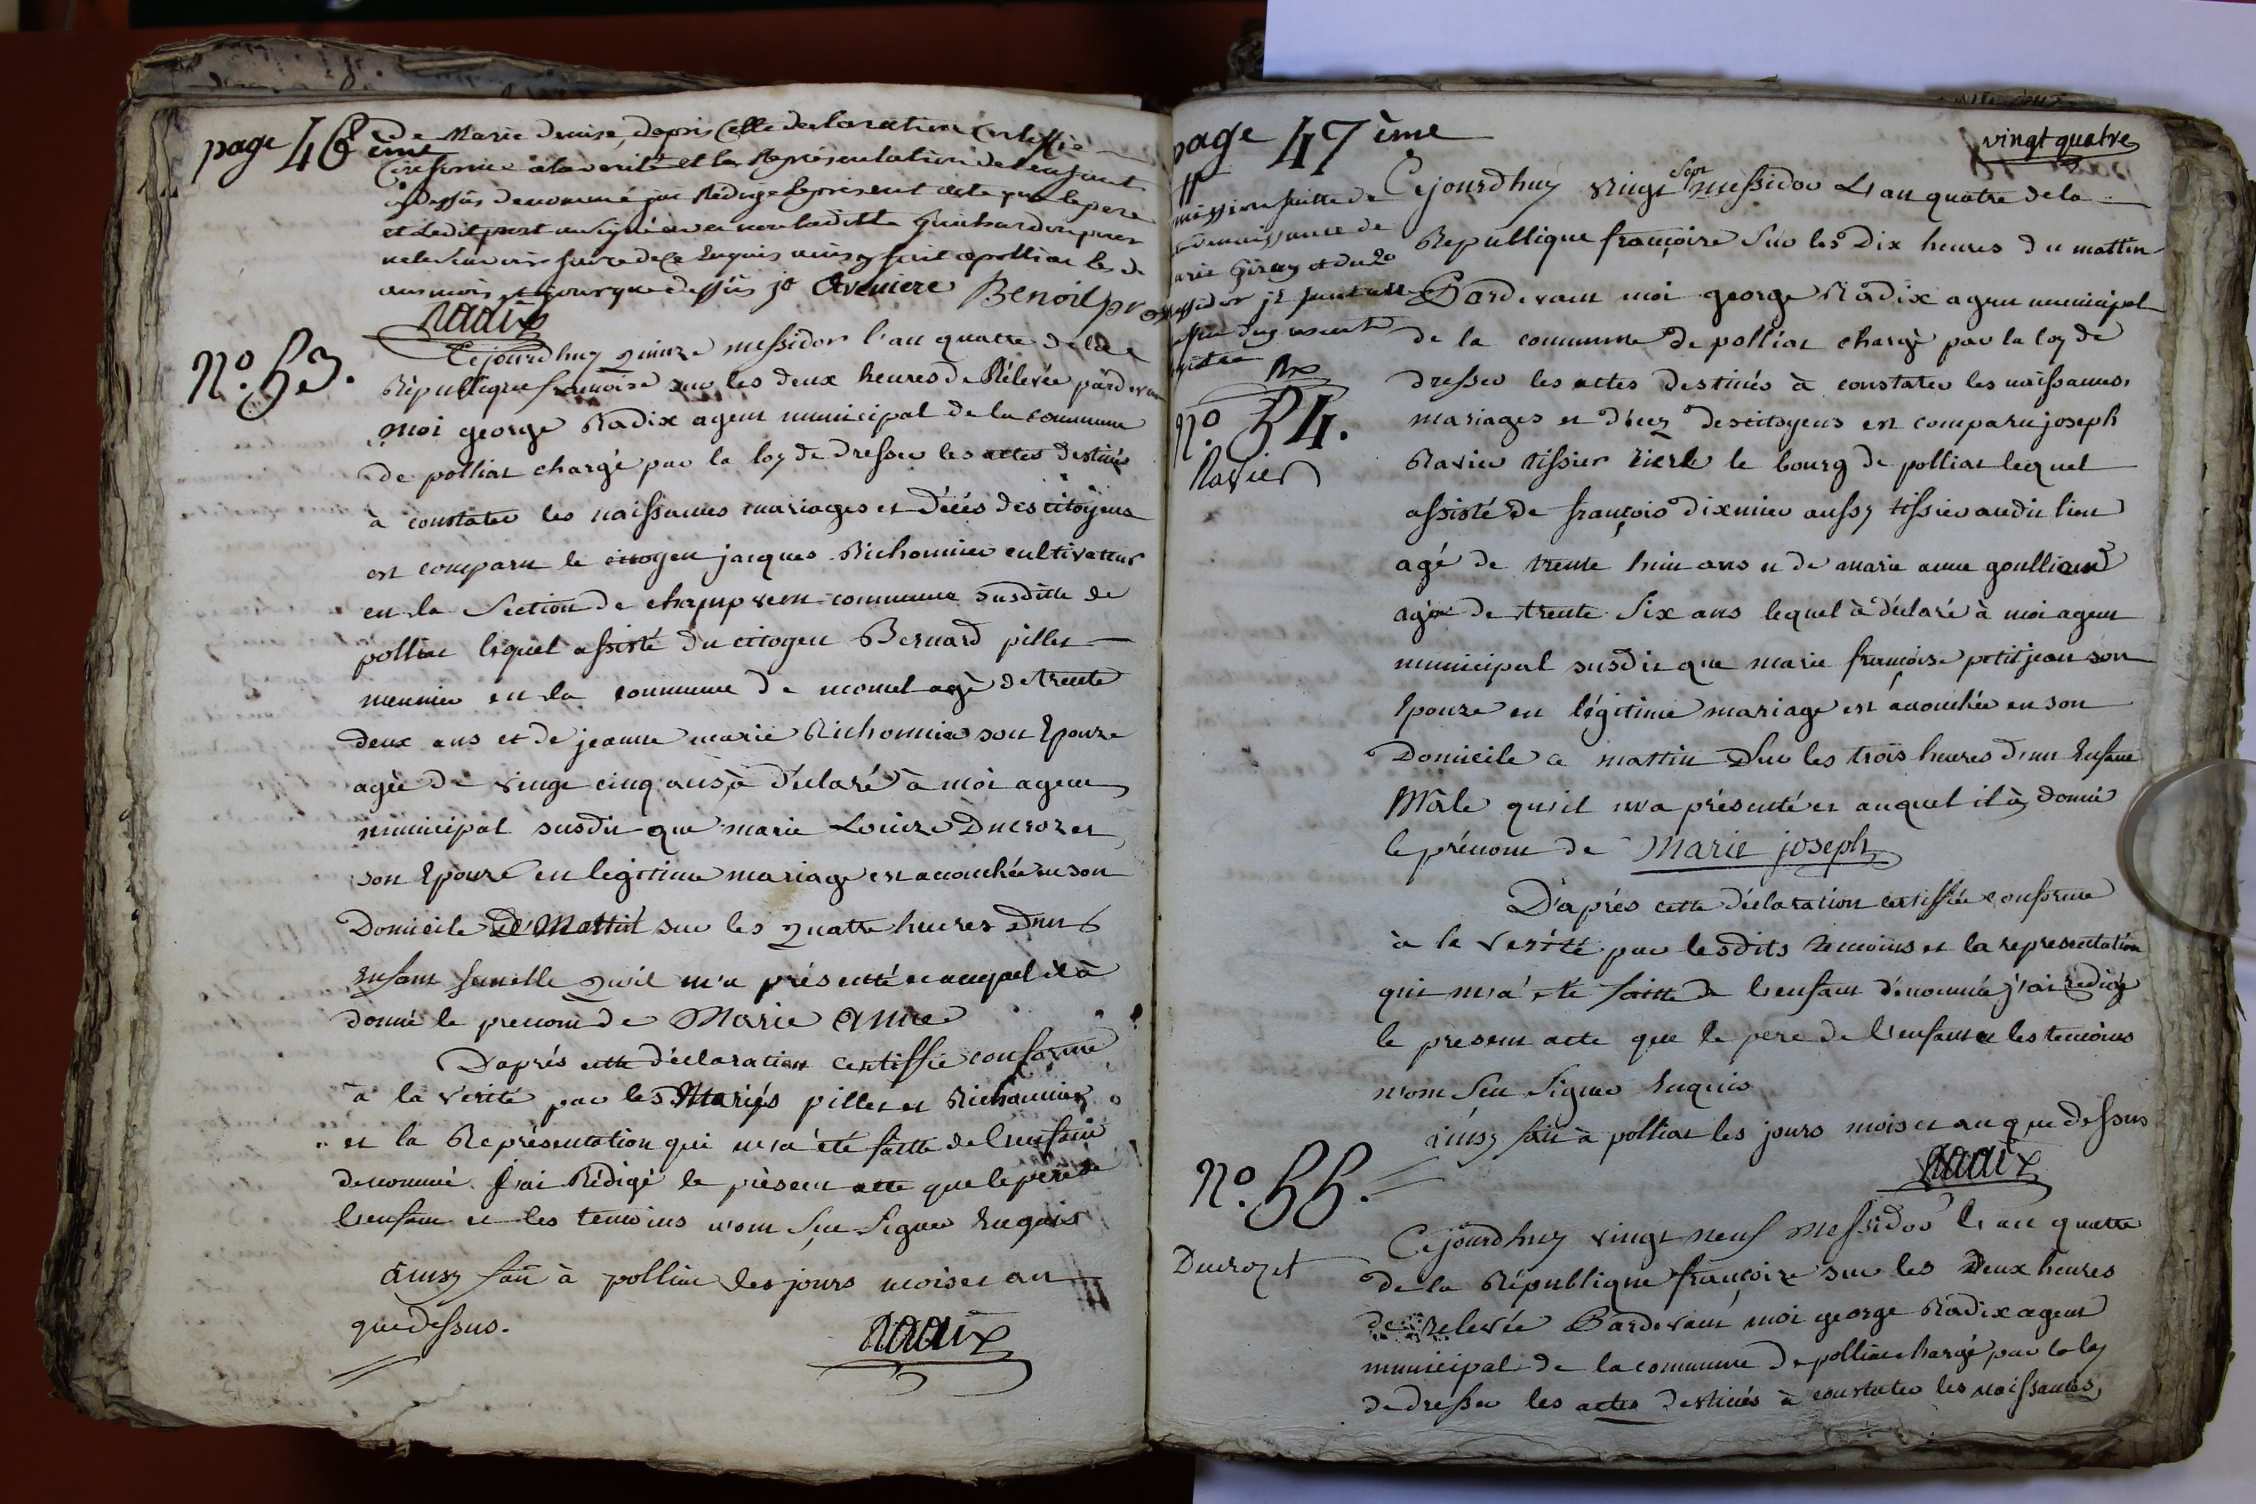 page 46 ème
de Marie denise, dapris Cette declaration Certiffié
Conforme alaverité et la Représentation de lenfant
cy dessus denommé jai Rédigé le présent acte que le pere
et ledit prost ont signé avec moi laditte
faire de ce Enquis ainsy fait a polliat les
an mois et jour que dessus jh Aveniere Benoit prost
Radix
N.° 53.
Cejourdhuy quinze messidor l'an quatre de la
République françoise sur les deux heures de Rélevée pardevant
moi george Radix agent municipal de la commune
de polliat chargé par la loy de dresser les actes destinés
à constater les naissances mariages et Décés des citoyens
est comparu le citoyen jacques Richonnier cultivateur
en la Section de champvent commune susditte de
polliat lequel assisté du citoyen Bernard pillet
meunier en la commune de moncet agé de trente
deux ans et de jeanne marie Richonnier son Epouze
agée de vingt cinq ans, à déclaré à moi agent
municipal susdit que marie Louize Ducrozet
son Epouze en legitime mariage est accouchée en son
Domicile Ce Mattin sur les quatre heures d'un
Enfant femelle qu'il m'a présenté et auquel il à
donné le prenom de Marie Anne
D'aprés cette déclaration Certiffié conforme
à la verité par les Mariés pillet et Richonnier
et la Représentation qui m'a été faitte de l'enfant
denommé. J'ai Rédigé le présent acte que le pere de
l'enfant et les temoins n'ont Sçu Signer Enquis
ainsy fait à polliat les jours mois et an
que dessus.
Radix
page 47 ème
vingt quatre
N.° 54.
Ravier
Cejourdhuy vingt Sept messidor L'an quatre de la
Republique françoise Sur les Dix heures du mattin
Pardevant moi george Radix agent municipal
de la commune de polliat chargé par la loy de
dresser les actes destinés à constater les naissances,
mariages et décez des citoyens est comparu joseph
Ravier tissier Rierle le bourg de polliat lequel
assisté de françois dixmier aussy tissier audit lieu
agé de trente huit ans et de marie anne goulliaud
agée de trente Six ans lequel à déclaré à moi agent
municipal susdit que marie françoise petitjean son
Epouze en légitime mariage est accouchée en son
Domicile ce mattin Sur les trois heures d'un Enfant
Mâle qu'il m'a présenté et auquel il à donné
le prénom de Marie joseph
D'aprés cette déclaration certiffiée conforme
à la verité par lesdits temoins et la representation
qui m'a été faitte de l'enfant dénommé j'ai redigé
le present acte que le pere de l'enfant et les temoins
n'ont Sçu Signer Enquis
ainsy fait à polliat les jours mois et an que dessus
Radix
N.° 55.
Ducrozet
Cejourdhuy vingt neuf Messidor l'an quatre
de la République françoize sur les Deux heures
de Relevée Pardevant moi george Radix agent
municipal de la commune de polliat chargé par la loy
de dresser les actes destinés à constater les naissances,